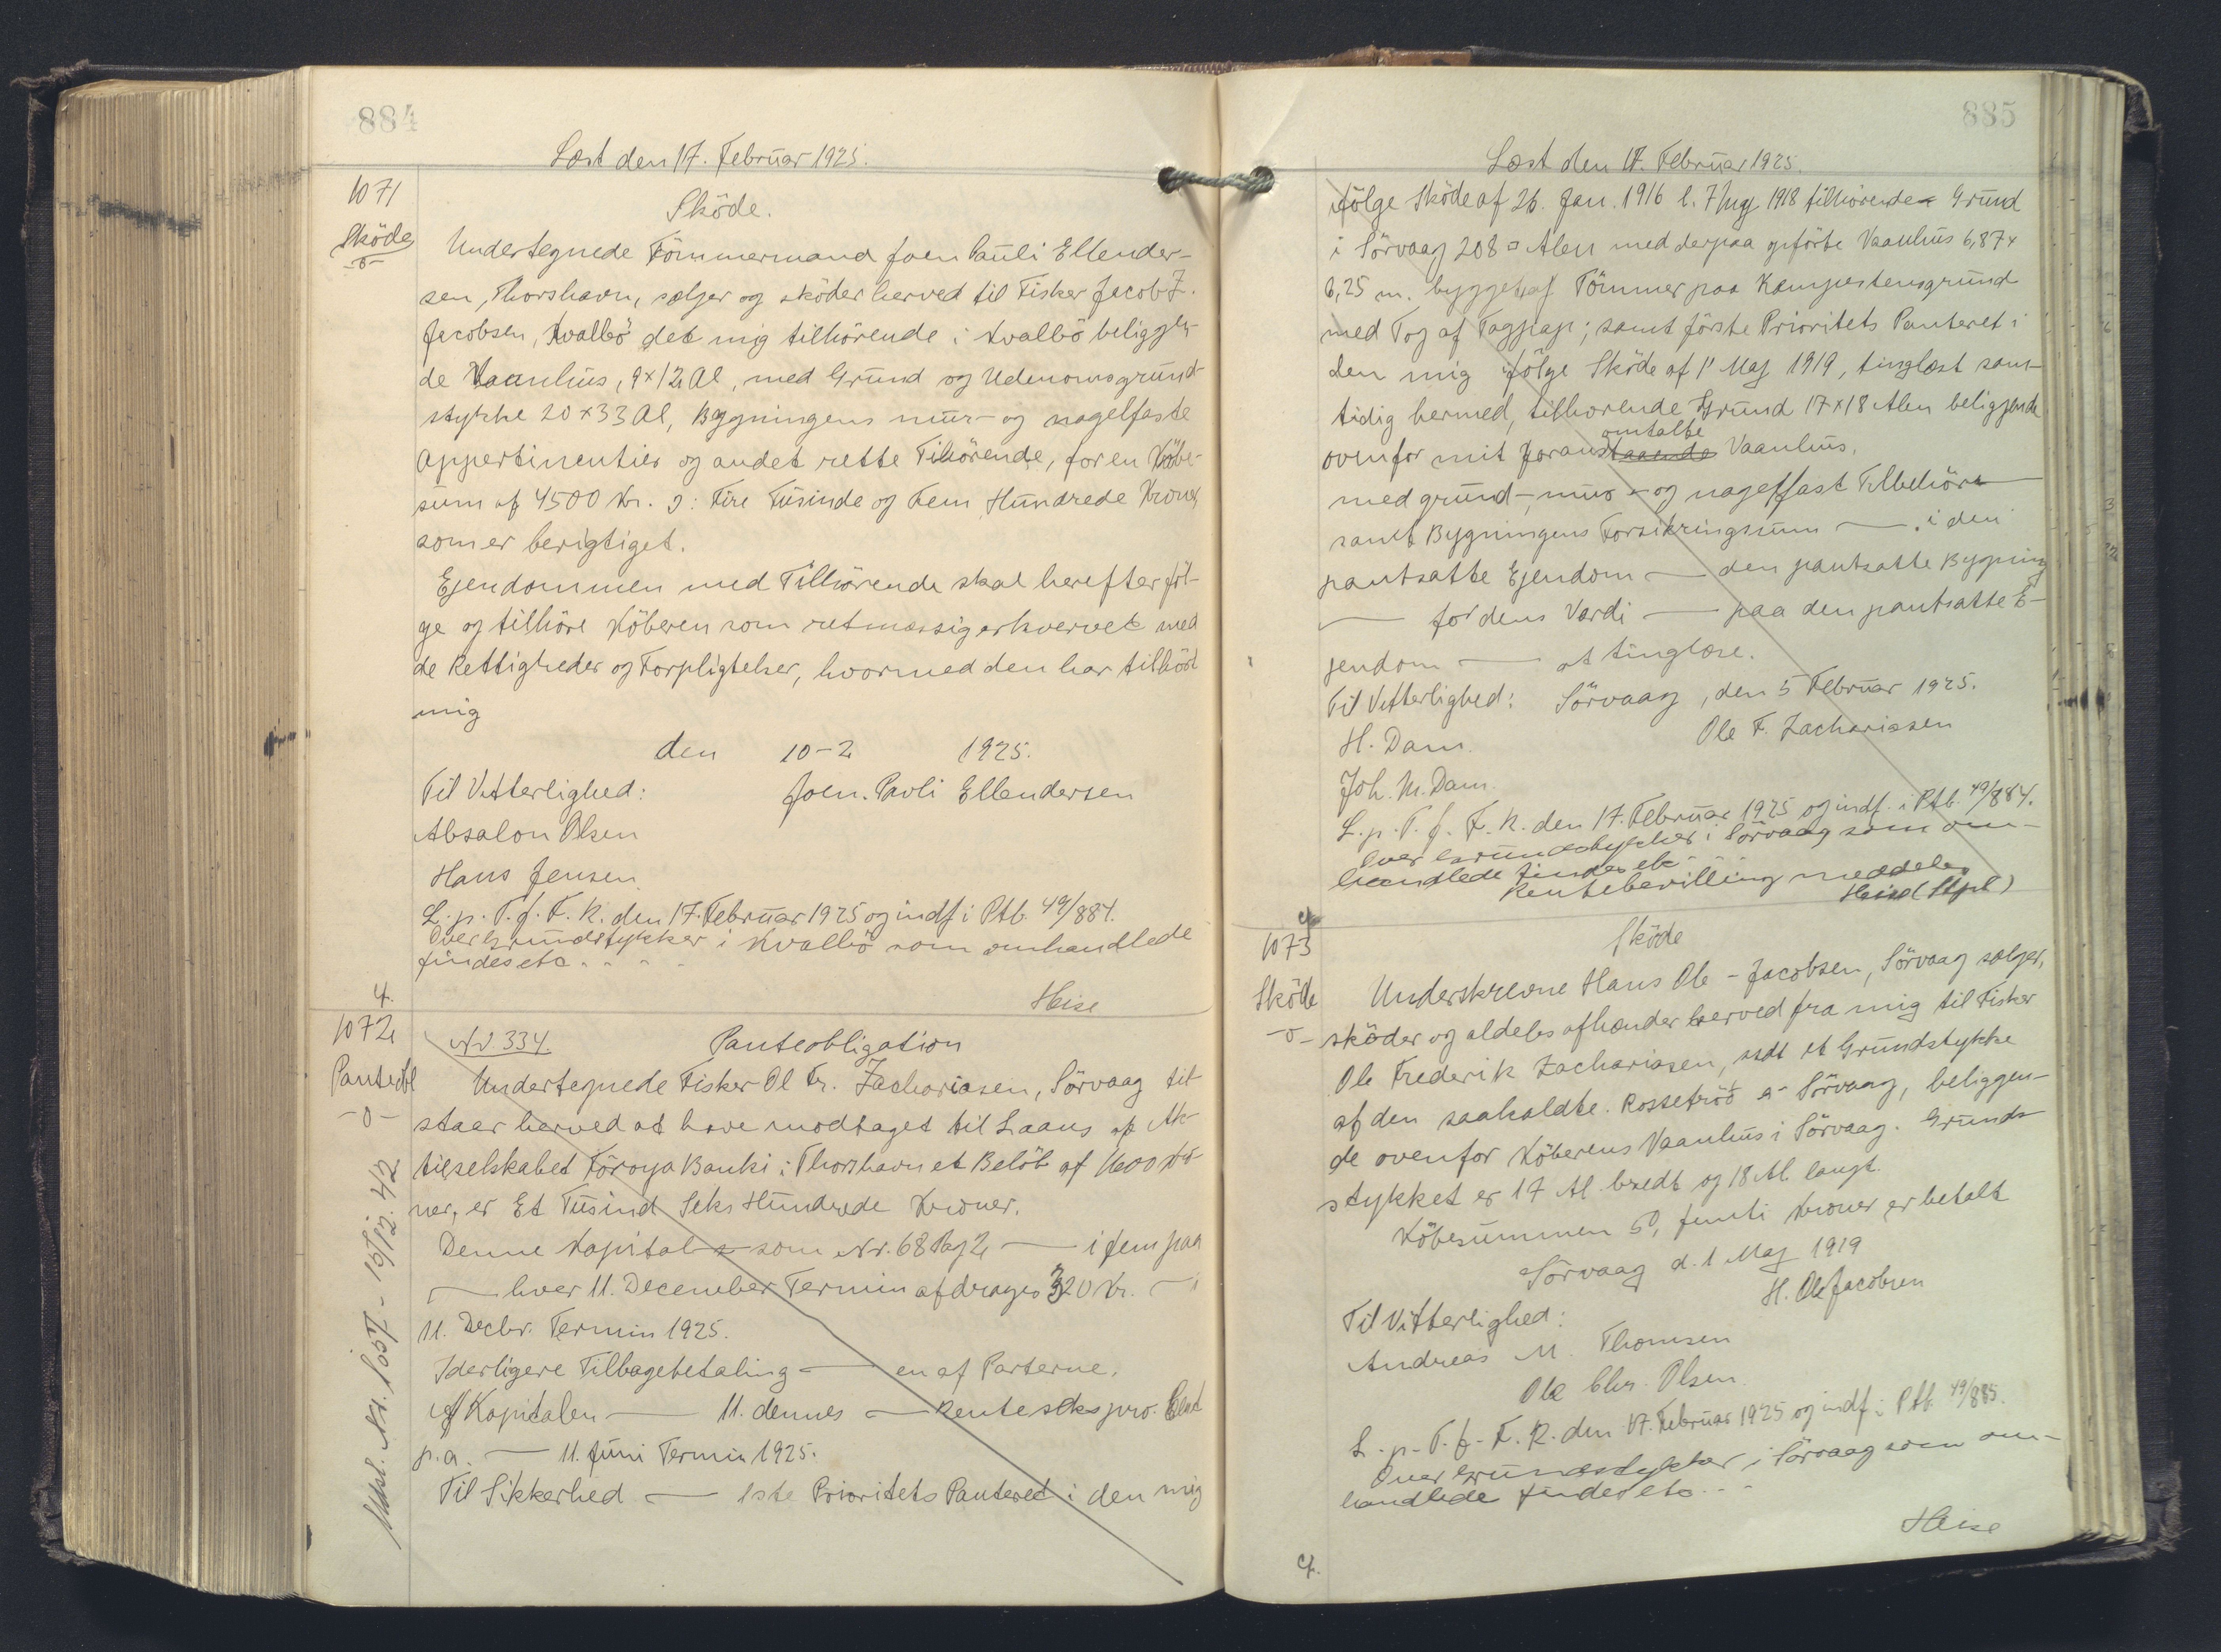 884
Læst den 17. Februar 1925.
1071
Sköde
-o-
Sköde.
Undertegnede Tömmermand Joen Pauli Ellender-
sen, Thorshavn, sælger og sköder herved til Fisker Jacob J.
Jacobsen, Kvalbö det mig tilhörende i Kvalbö beliggen-
de Vaanhus, 9x12 Al, med Grund og Udenomsgrund-
stykke 20x33 Al, Bygningens mur- og nagelfaste
Appertinentier og andet rette Tilhörende, for en Köbe-
sum af 4500 Kr. ɔ: Fire Tusinde og Fem Hundrede Kroner
som er berigtiget.
Ejendommen med Tilhörende skal herefter föl-
ge og tilhöre Köberen som retmæssig erhvervet med
de Rettigheder og Forpligtelser, hvormed den har tilhört
mig
den 10-2 1925.
Til Vitterlighed: Joen. Pavli Ellendersen
Absalon Olsen
Hans Jensen
L. p. T. f. F. R. den 17. Februar 1925 og indf i Ptb. 49/884.
Over Grundstykker i Kvalbö som omhandlede
findes etc
Heise
4.
1072
Panteobl
-o-
Udsl. Nr. 1057 - 19/12. 42
Nr. 334. Panteobligation
Undertegnede Fisker Ol Fr. Zachariasen, Sörvaag til-
staar herved at have modtaget til Laans af Ak-
tieselskabet Föroya Banki i Thorshavn et Belöb af 1600 Kro-
ner, er Et Tusind Seks Hundrede Kroner.
Denne Kapital - som Nr. 68 Pag 2 — i fem paa
— hver 11. December Termin afdrages 320 Kr. —
11. Decbr. Termin 1925.
Yderligere Tilbagebetaling — en af Parterne.
Af Kapitalen — 11. dennes — Rente seks pro. Cent
p.a. — 11. Juni Termin 1925.
Til Sikkerhed — 1ste Prioritets Panteret i den mig
885
Læst den 17. Februar 1925.
ifölge Sköde af 26. Jan. 1916 l. 7 1918 tilhörende Grund
i Sörvaag 208 □ Alen med derpaa opförte Vaanhus 6,87x
6,25 m. bygget af Tömmer paa Kampestensgrund
med Tag af Tagpap; samt förste Prioritets Panteret i
den mig ifölge Sköde af 1' Maj 1919, tinglæst sam-
tidig hermed, tilhorende Grund 17x18 Alen beliggende
omtalte
ovenfor mit foranstaaende Vaanhus,
med grund-, mur- og nagelfast Tilbehöre
samt Bygningens Forsikringssum — . i den
pantsatte Ejendom — den pantsatte Bygning
— for dens Værdi — paa den pantsatte E-
jendom — at tinglæse.
Til Vitterlighed: Sörvaag, den 5 Februar 1925.
H. Dam. Ole F. Zachariasen
Joh. M. Dam.
L. p. T. f. F. R. den 17. Februar 1925 og indf. i Ptb. 49/884.
Over Grundstykker i Sörvaag som om-
handlede findes etc
Rentebevilling meddeles
Heise (Stpl)
4
1073
Sköde
-o-
Sköde
Underskrevne Hans Ole - Jacobsen, Sörvaag sælger,
sköder og aldeles afhænder herved fra mig til Fisker
Ole Frederik Zachariasen, sstds et Grundstykke
af den saakaldte. Rossetröð a Sörvaag, beliggen-
de ovenfor Köberens Vaanhus i Sörvaag. Grund-
stykket er 17 Al bredt og 18 Al. langt.
Köbesummen 50, femti Kroner er betalt
Sörvaag d. 1 Maj 1919
H. Ole Jacobsen
Til Vitterlighed:
Andreas M. Thomsen
Ole Chr. Olsen.
L. p. T. f. F. R. den 17. Februar 1925 og indf i Ptb. 49/885.
Over Grundstykker i Sörvaag som om-
handlede findes etc
Heise
4.